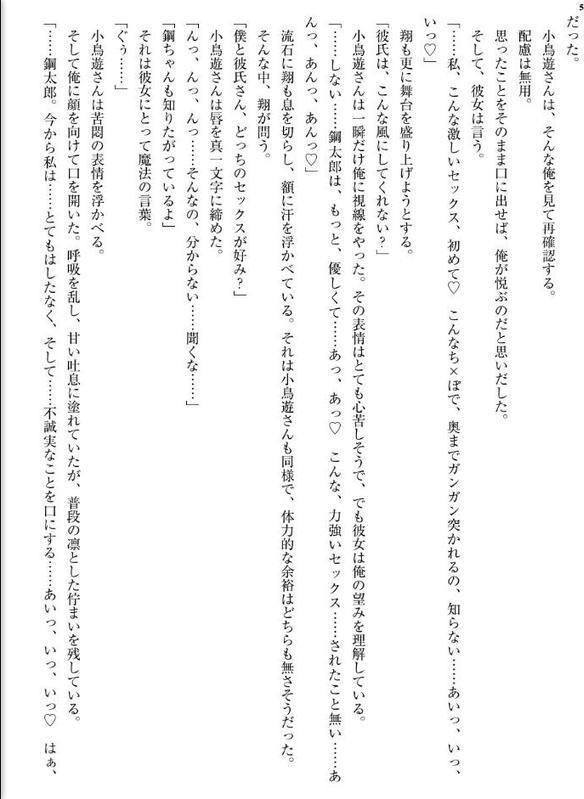 5
だった。
小鳥遊さんは、そんな俺を見て再確認する。
配慮は無用。
思ったことをそのまま口に出せば、俺が悦ぶのだと思いだした。
そして、彼女は言う。
「……私、こんな激しいセックス、初めて♡　こんなち×ぽで、奥までガンガン突かれるの、知らない……あいっ、いっ、
いっ♡」
翔も更に舞台を盛り上げようとする。
「彼氏は、こんな風にしてくれない？」
小鳥遊さんは一瞬だけ俺に視線をやった。その表情はとても心苦しそうで、でも彼女は俺の望みを理解している。
「……しない……鋼太郎は、もっと、優しくて……あっ、あっ♡　こんな、力強いセックス……されたこと無い……あ
んっ、あんっ、あんっ♡」
流石に翔も息を切らし、額に汗を浮かべている。それは小鳥遊さんも同様で、体力的な余裕はどちらも無さそうだった。
そんな中、翔が問う。
「僕と彼氏さん、どっちのセックスが好み？」
小鳥遊さんは唇を真一文字に締めた。
「んっ、んっ、んっ……そんなの、分からない……聞くな……」
「鋼ちゃんも知りたがっているよ」
それは彼女にとって魔法の言葉。
「ぐぅ……」
小鳥遊さんは苦悶の表情を浮かべる。
そして俺に顔を向けて口を開いた。呼吸を乱し、甘い吐息に塗れていたが、普段の凛とした佇まいを残している。
「……鋼太郎。今から私は……とてもはしたなく、そして……不誠実なことを口にする……あいっ、いっ、いっ♡　はぁ、